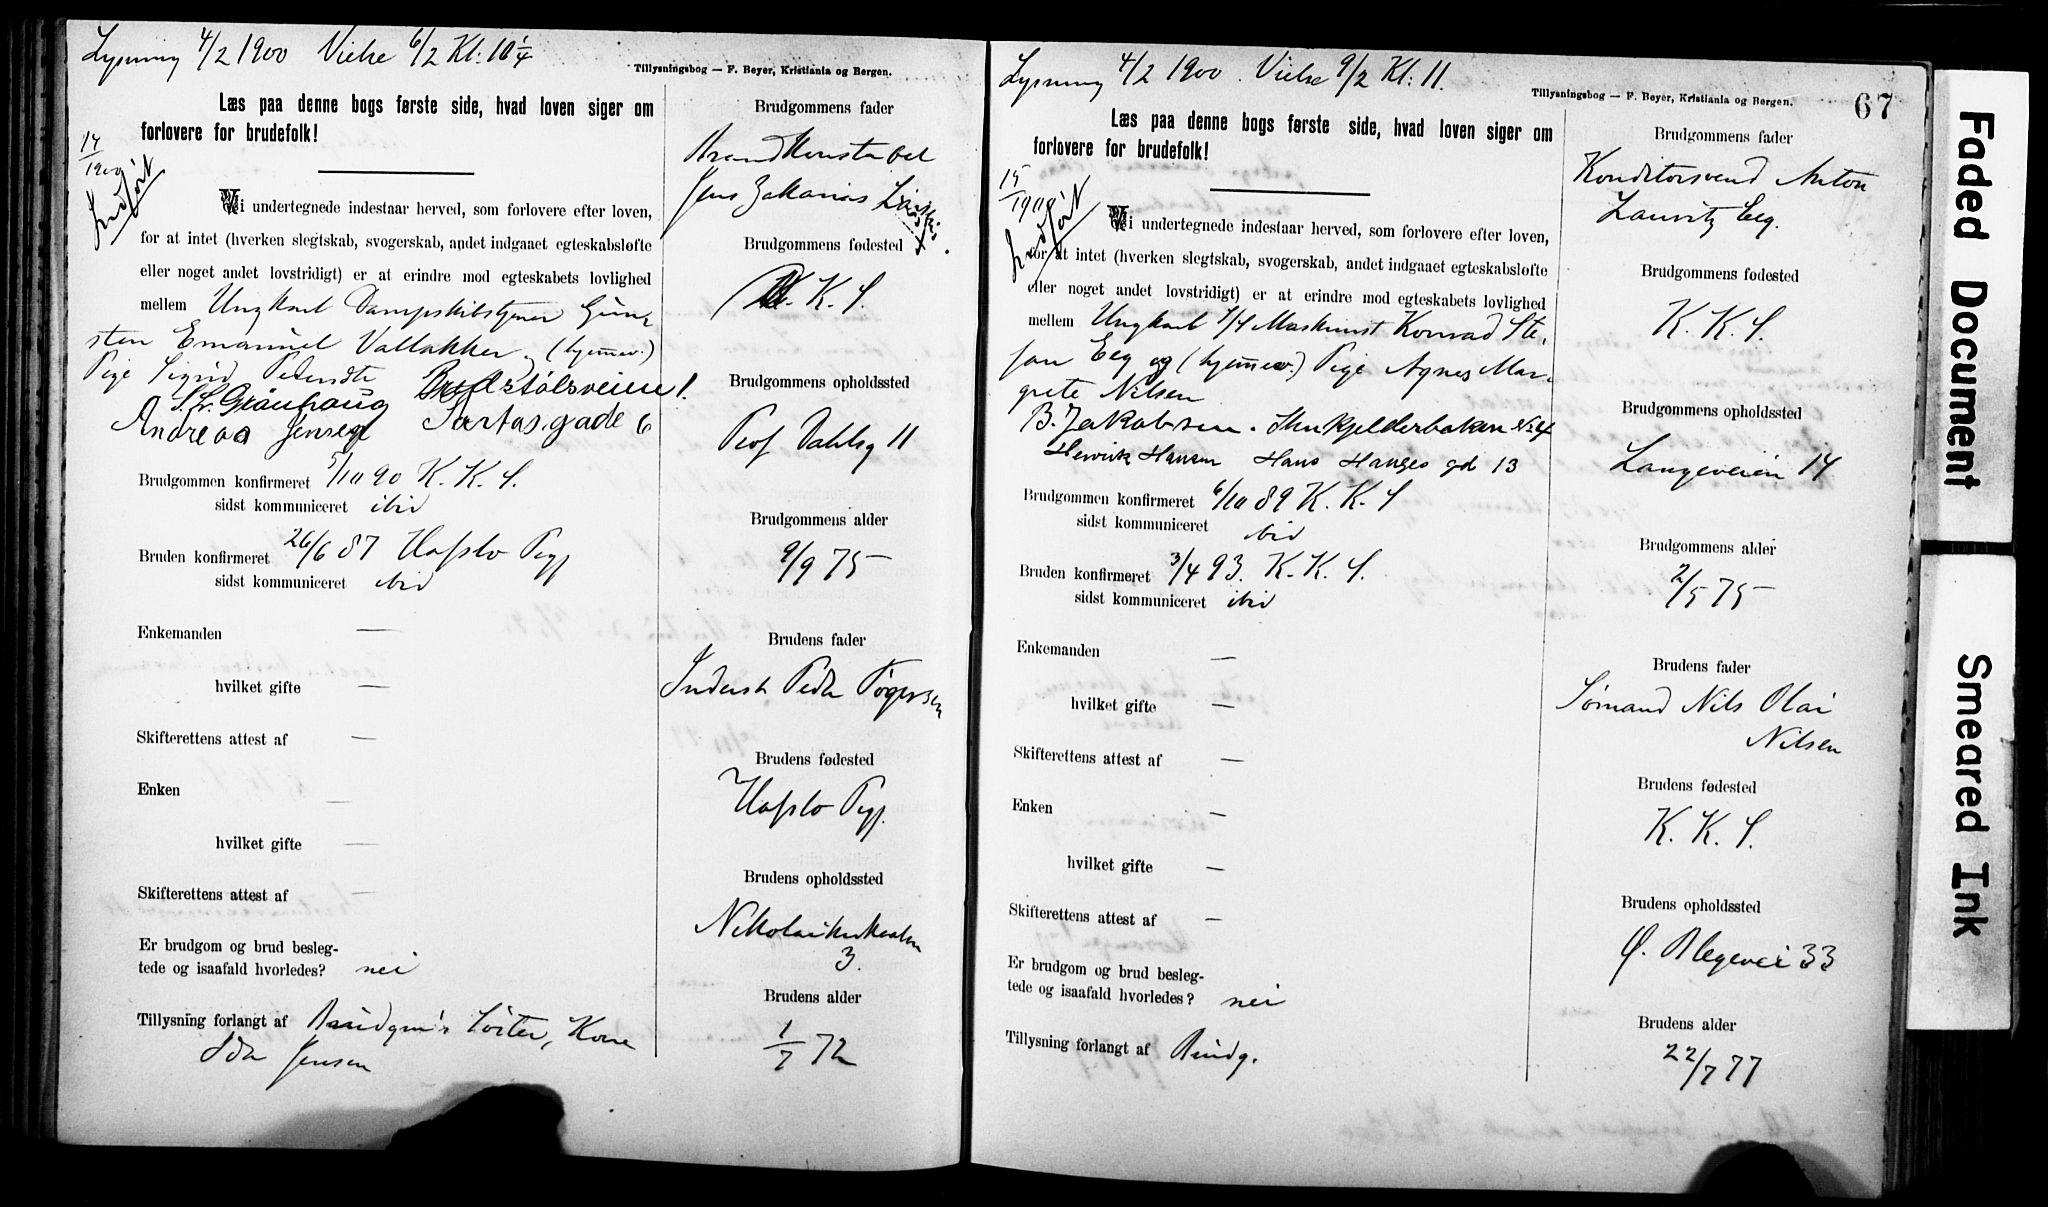 Lysning 4/2 1900 Vielse 6/2 Kl: 10 1/4
Tillysningsbog — F. Beyer, Kristiania og Bergen.
Læs paa denne bogs første side, hvad loven siger om
forlovere for brudefolk!
14
1900
Indført
Vi undertegnede indestaar herved, som forlovere efter loven,
for at intet (hverken slegtskab, svogerskab, andet indgaaet egteskabsløfte
eller noget andet lovstridigt) er at erindre mod egteskabets lovlighed
mellem Ungkarl Dampskibstjener Gun-
sten Emanuel Vallakker (hjemmev.)
Pige Sigrid Pedersdtr
Andreas Jensen Sartasgade 6
Brudgommen konfirmeret 5/10 90 K. K. S.
sidst kommuniceret ibid
Bruden konfirmeret 26/6 87 Hafslo Pgj
sidst kommuniceret ibid
Enkemanden —
hvilket gifte —
Skifterettens attest af —
Enken —
hvilket gifte —
Skifterettens attest af —
Er brudgom og brud besleg-
tede og isaafald hvorledes? nei
Tillysning forlangt af Brudgm's Søster, Kone
Ida Jensen
Brudgommens fader
Brandkonstabel
Jens Zakarias
Brudgommens fødested
K. S.
Brudgommens opholdssted
Prof Dahlsg 11
Brudgommens alder
9/9 75
Brudens fader
Inderst Peder Tøgersen
Brudens fødested
Hafslo Pgj.
Brudens opholdssted
Nikolaikirkealm
3.
Brudens alder
1/7 72
Lysning 4/2 1900. Vielse 9/2 Kl: 11.
Tillysningsbog — F. Beyer, Kristiania og Bergen.
67
Læs paa denne bogs første side, hvad loven siger om
forlovere for brudefolk!
15
1900
Indført
Vi undertegnede indestaar herved, som forlovere efter loven,
for at intet (hverken slegtskab, svogerskab, andet indgaaet egteskabsløfte
eller noget andet lovstridigt) er at erindre mod egteskabets lovlighed
mellem Ungkarl Maskinist Konrad Ste-
fan Eeg og (hjemmev.) Pige Agnes Mar-
grete Nilsen
B. Jakobsen.
Henrik Hansen Hans Hauges gd 13
Brudgommen konfirmeret 6/10 89 K. K. S
sidst kommuniceret ibid
Bruden konfirmeret 3/4 93. K. K. S.
sidst kommuniceret ibid
Enkemanden —
hvilket gifte —
Skifterettens attest af —
Enken —
hvilket gifte —
Skifterettens attest af —
Er brudgom og brud besleg-
tede og isaafald hvorledes? nei
Tillysning forlangt af Brudg.
Brudgommens fader
Konditorsvend Anton
Lauritz Eeg.
Brudgommens fødested
K. K. S.
Brudgommens opholdssted
Langeveien 14
Brudgommens alder
2/5 75
Brudens fader
Sømand Nils Olai
Nilsen
Brudens fødested
K. K. S.
Brudens opholdssted
Ø. Blegevei 33
Brudens alder
22/7 77
Faded Document
Smeared Ink